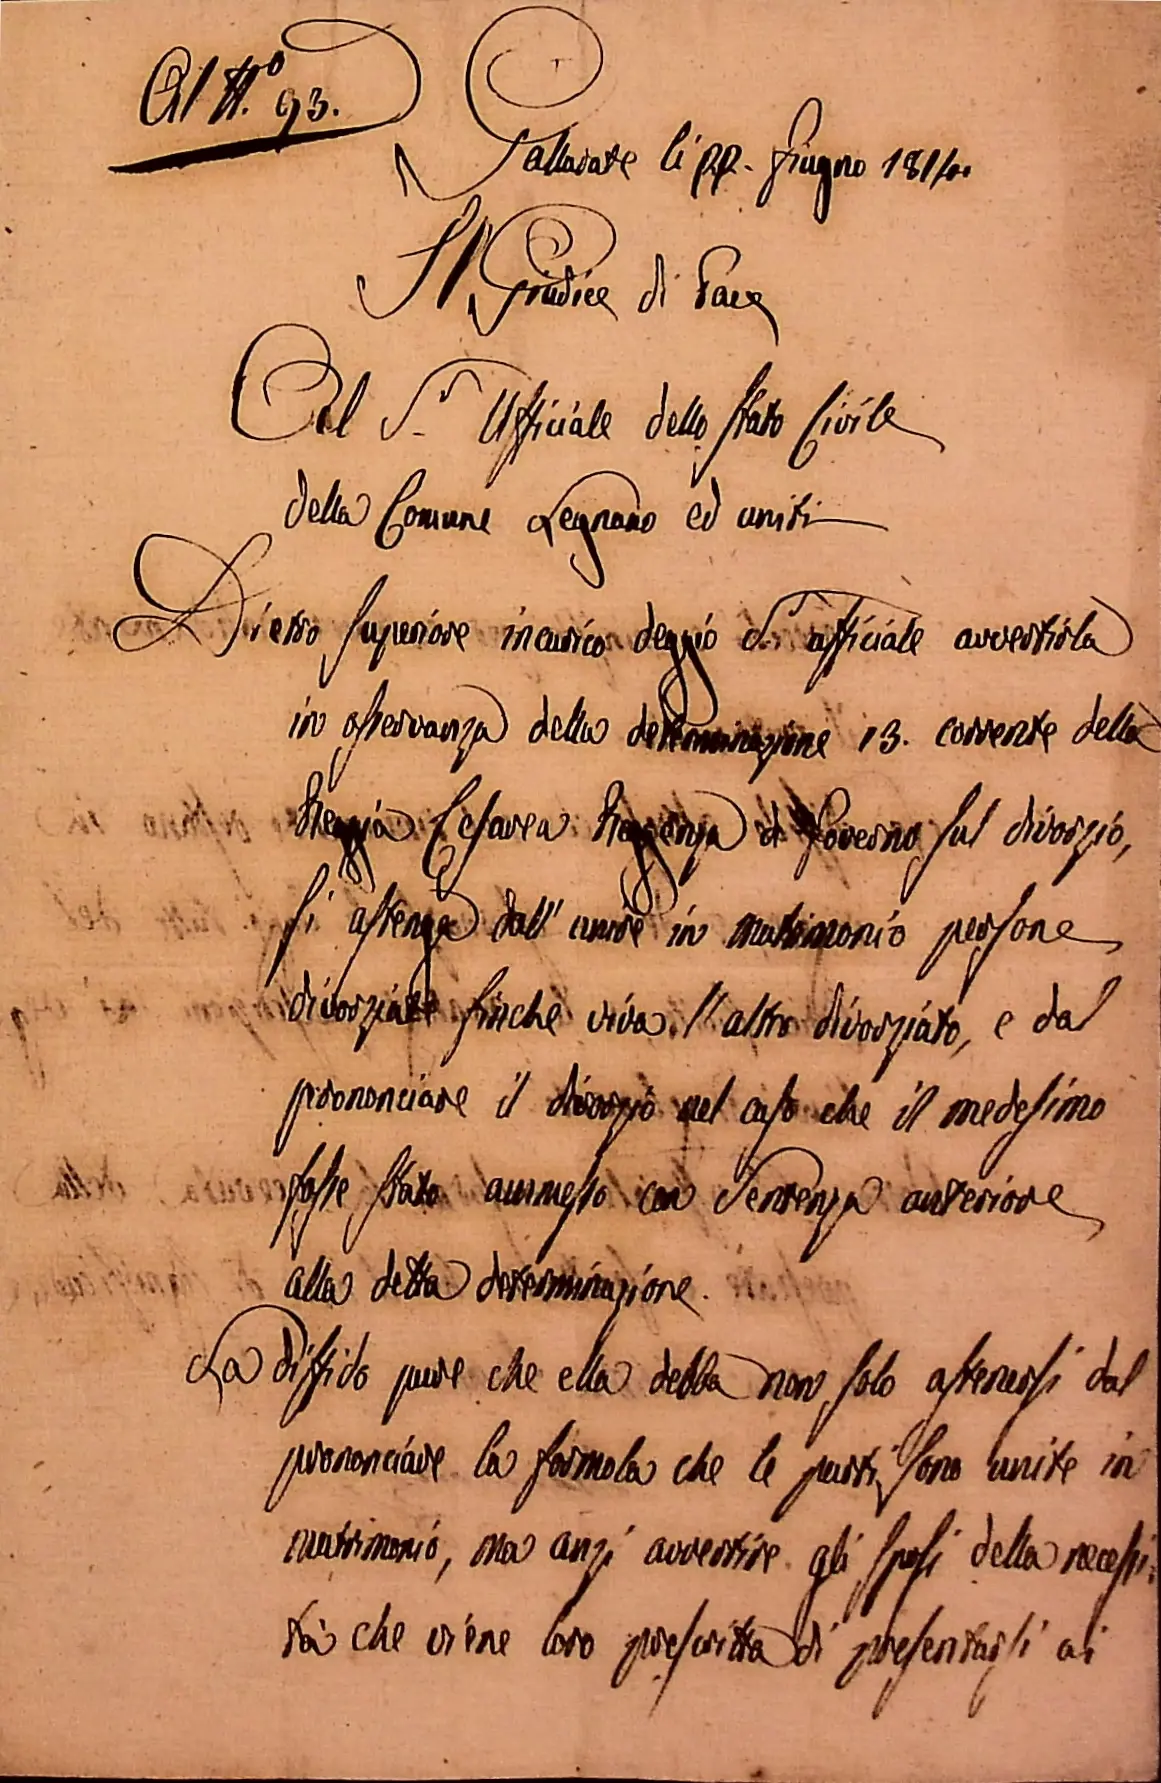 Al N.º 93.
Gallarate li 22. Giugno 1814.
Il Giudice di Pace
Al S.r Ufficiale dello Stato Civile
della Comune Legnano ed uniti
Dietro superiore incarico deggio S.r ufficiale avvertirla
in osservanza della determinazione 13. corrente della
Reggia Cesarea Reggenza di Governo sul divorzio,
si astenga dall' unire in matrimonio persone
divorziate finche viva l'altro divorziato, e dal
prononciare il divorzio nel caso che il medesimo
fosse stato ammesso con Sentenza anteriore
alla detta determinazione.
La diffido pure che ella debba non solo astenersi dal
prononciare la formola che le parti sono unite in
matrimonio, ma anzi avvertire gli sposi della necessi-
tà che viene loro prescritta di presentarsi ai